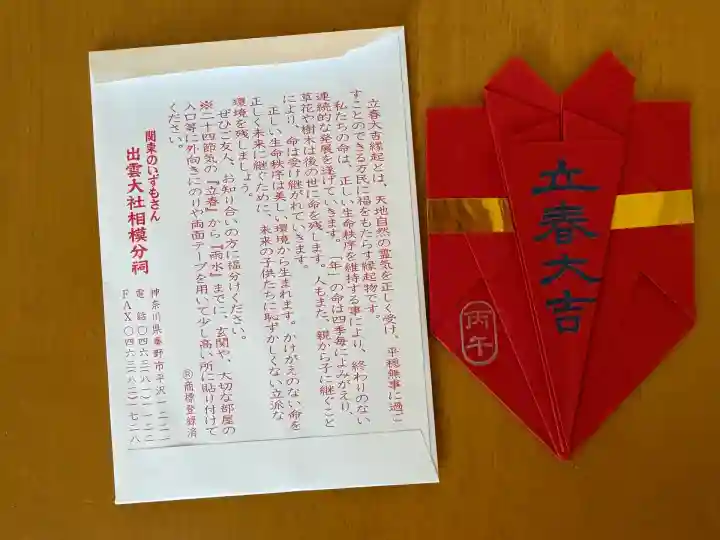 立春大吉縁起とは、天地自然の霊気を正しく受け、平穏無事に過ご
すことのできる万民に福をもたらす縁起物です。
私たちの命は、正しい生命秩序を維持する事により、終わりのない
連続的な発展を遂げていきます。「年」の命は四季毎によみがえり、
草花や樹木は後の世に命を残します。人もまた、親から子に継ぐこと
により、命は受け継がれていきます。
正しい生命秩序は美しい環境から生まれます。かけがえのない命を
正しく未来に継ぐために、未来の子供たちに恥ずかしくない立派な
環境を残しましょう。
ぜひご友人、お知り合いの方に福分けください。
※二十四節気の『立春』から『雨水』までに、玄関や、大切な部屋の
入口等に外向きにのりや両面テープを用いて少し高い所に貼り付けて
ください。
Ⓡ商標登録済
関東のいずもさん
出雲大社相模分祠
神奈川県秦野市平沢一二二一
電話〇四六三(八一)一一二二
FAX〇四六三(八二)一七二八
立春大吉
丙午